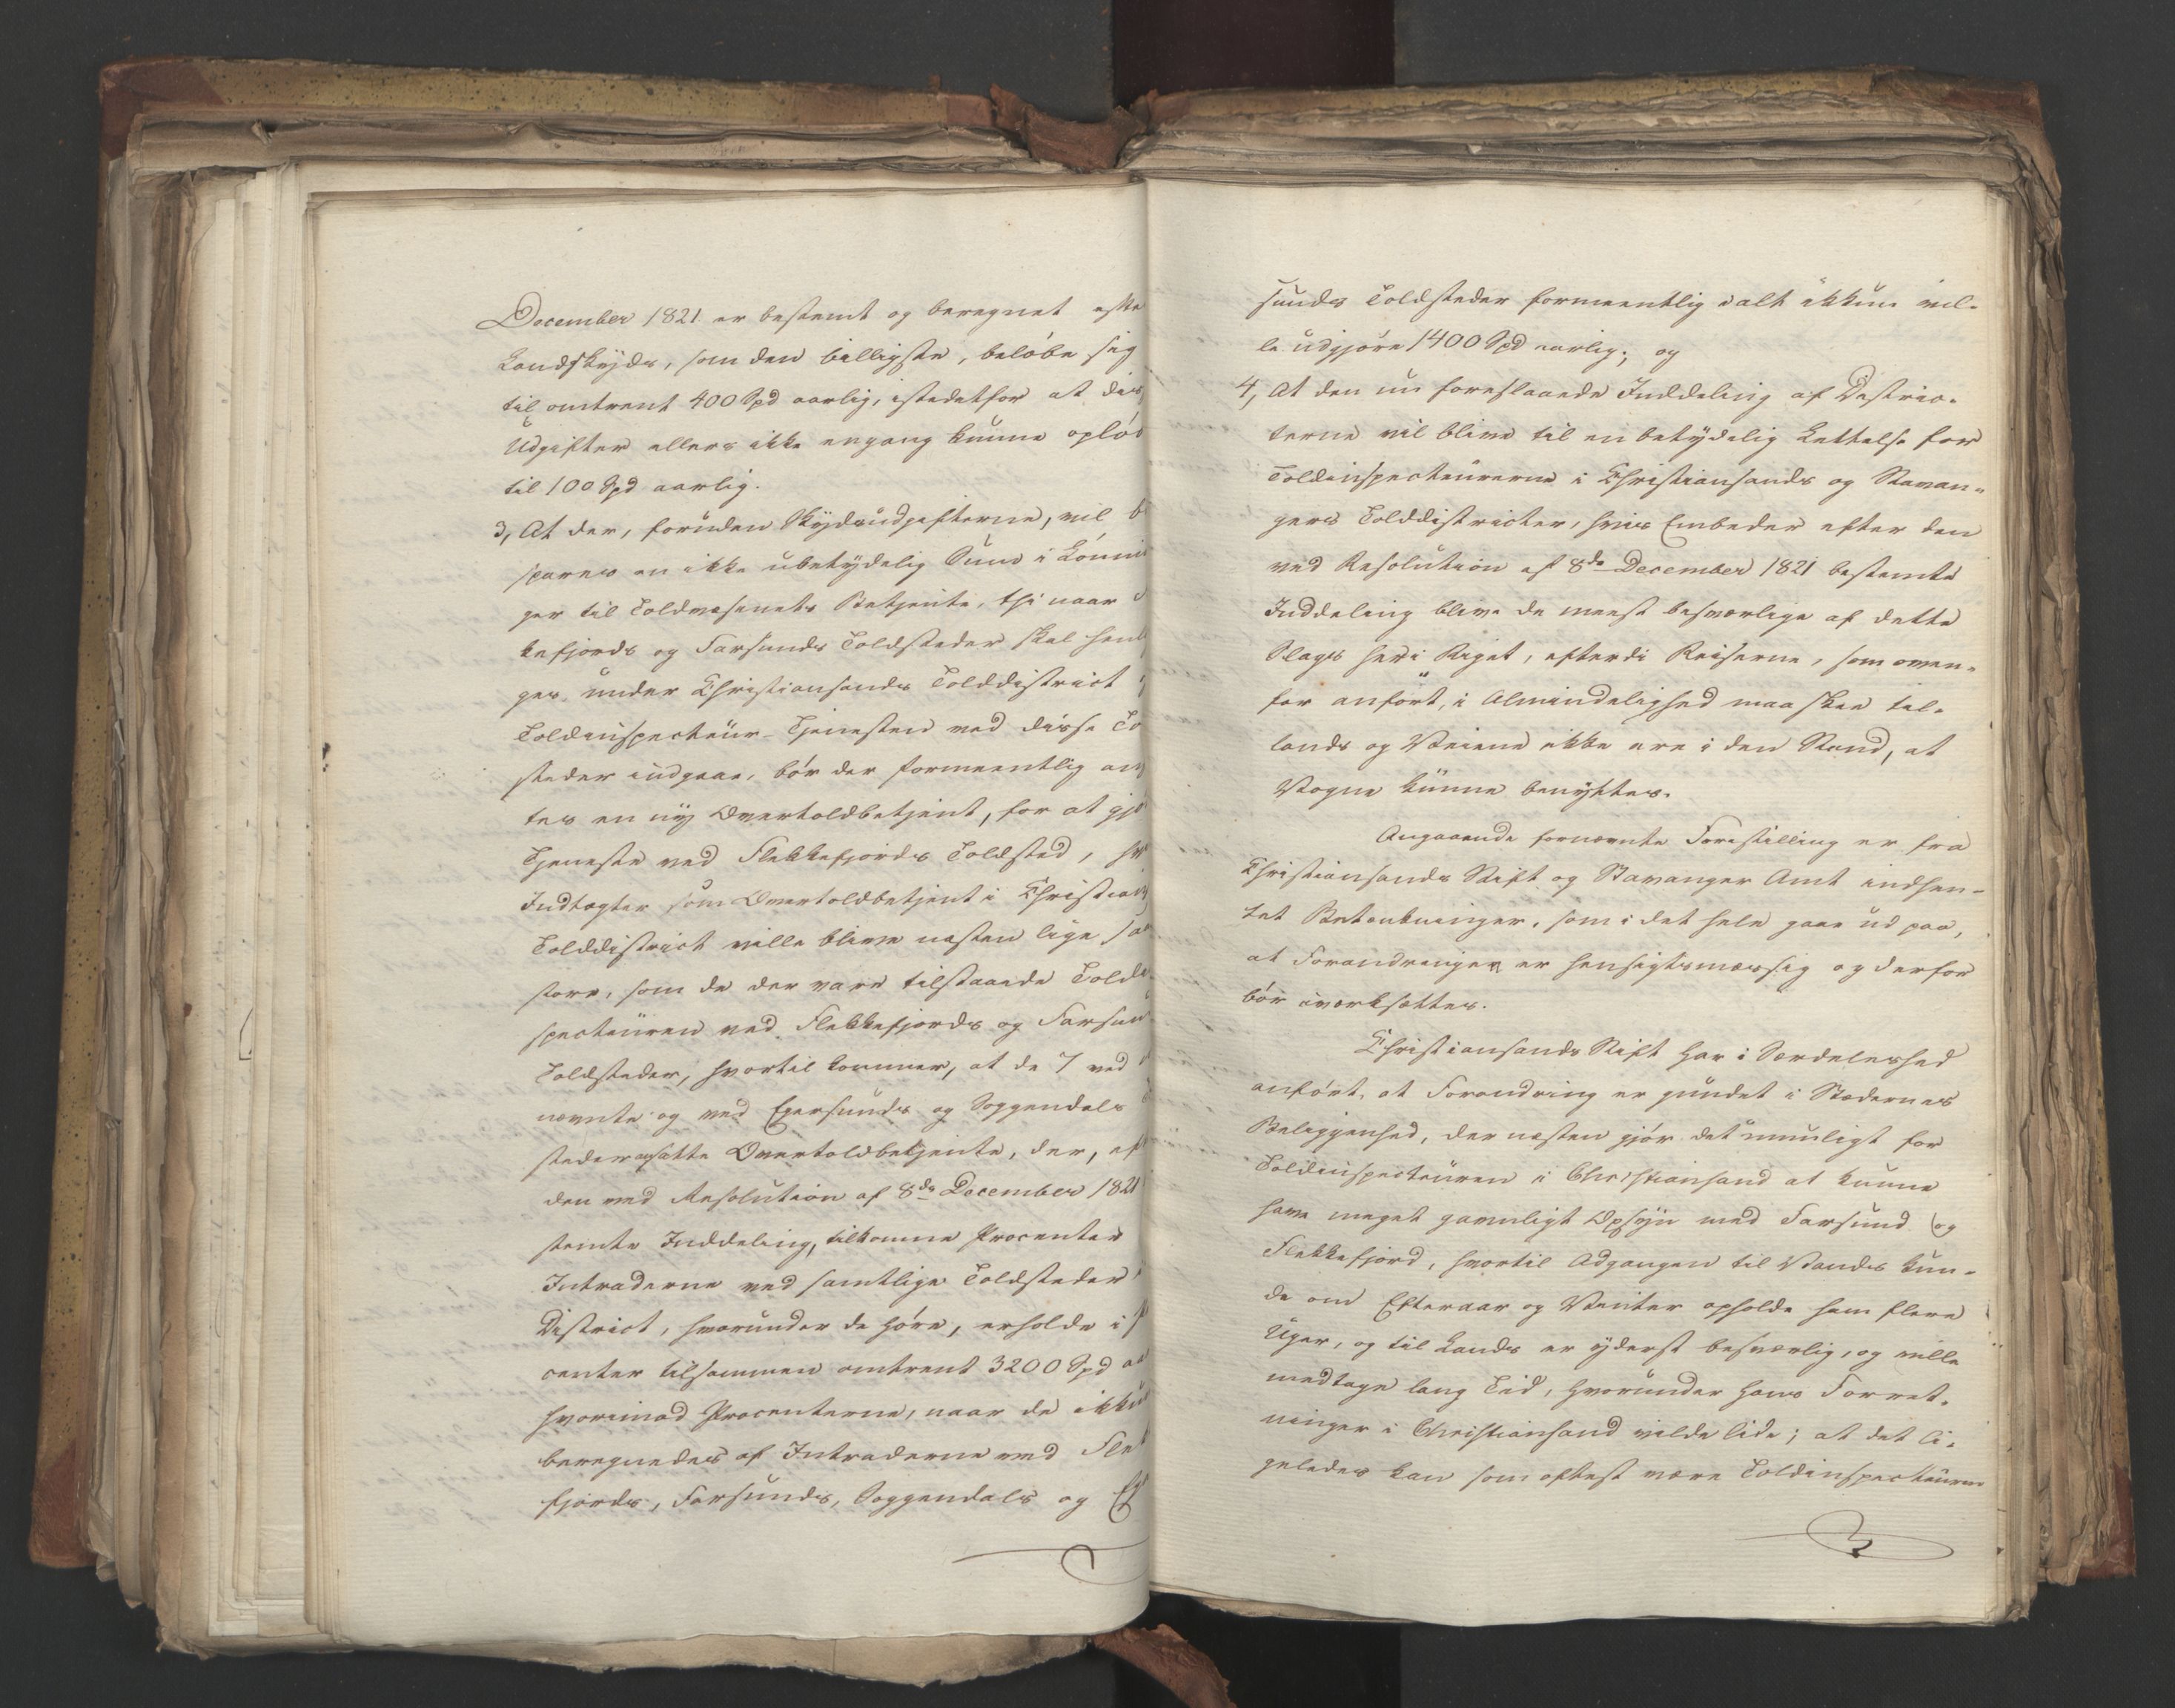 December 1821 er bestemt og beregnet efte
Landskyds, som den billigste, beløbe sig
til omtrent 400 Spd aarlig, istedetfor at dis
Udgifter ellers ikke engang kunne opløb
til 100 Spd aarlig.
3, At der, foruden Skydsudgifterne, vil b
spares en ikke ubetydelig Sum i Lønnin
ger til Toldvæsenets Betjente, thi naar
kefjords og Farsunds Toldsteder skal henl
ges under Christiansands Tolddistrict
Toldinspecteur-Tjenesten ved disse To
steder indgaae, bør der formeentlig an
tes en ny Overtoldbetjent, for at gjø
Tjeneste ved Flekkefjords Toldsted, hv
Indtægter som Overtoldbetjent i Christian
Tolddistrict ville blive næsten lige saa
store, som de der vare tilstaaede Toldin
specteuren ved Flekkefjords og Farsun
Toldsteder, hvortil kommer, at de 7 ved
nævnte og ved Egersunds og Soggendals
steder ansatte Overtoldbetjente, der, ef
den ved Resolution af 8de December 1821
stemte Inddeling, tilkomme Procenter
Intraderne ved samtlige Toldsteder i
District, hvorunder de høre, erholde i P
center tilsammen omtrent 3200 Spd aa
hvorimod Procenterne, naar de ikkun
beregnedes af Intraderne ved Flek
fjords, Farsunds, Soggendals og Eg
sunds Toldsteder formeentlig i alt ikkun vil-
le udgjøre 1400 Spd aarlig; og
4, At den nu foreslaaede Inddeling af Distric-
terne vil blive til en betydelig Lettelse for
Toldinspecteurerne i Christiansands og Stavan-
gers Tolddistricter, hvis Embeder efter den
ved Resolution af 8de December 1821 bestemte
Inddeling blive de meest besværlige af dette
Slags her i Riget, efterdi Reiserne, som oven-
for anført, i Almindelighed maa skee til-
lands og Veiene ikke ere i den Stand, at
Vogne kunne benyttes.
Angaaende fornævnte Forestilling er fra
Christiansands Stift og Stavanger Amt indhen-
tet Betænkninger, som i det hele gaae ud paa,
at Forandringen er hensigtsmæssig og derfor
bør iværksættes.
Christiansands Stift har i Særdeleshed
anført, at Forandring er gundet i Stædernes
Beliggenhed, der næsten gjør det umuligt for
Toldinspecteuren i Christiansand at kunne
have meget gavnligt Opsyn med Farsund og
Flekkefjord, hvortil Adgangen til Vands kun-
de om Efteraar og Vinter opholde ham flere
Uger, og til Lands er yderst besværlig, og ville
medtage lang Tid, hvorunder hans Forret-
ninger i Christiansand vilde lide; at det li-
geledes kan som oftest være Toldinspecteuren